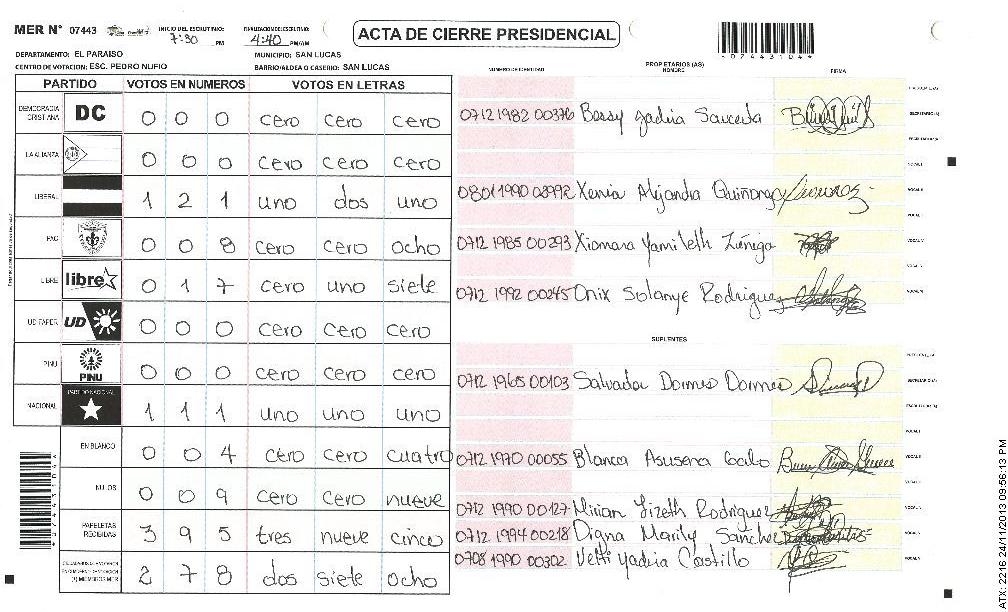 MER Nº 07443
INICIO DEL ESCRUTINIO: 7:30 PM
FINALIZACION DEL ESCRUTINIO: 4:40 PM/AM
ACTA DE CIERRE PRESIDENCIAL
DEPARTAMENTO: EL PARAISO
MUNICIPIO: SAN LUCAS
CENTRO DE VOTACION: ESC. PEDRO NUFIO
BARRIO/ALDEA O CASERIO: SAN LUCAS
PARTIDO VOTOS EN NUMEROS VOTOS EN LETRAS
DEMOCRACIA CRISTIANA DC 0 0 0 cero cero cero
LA ALIANZA 0 0 0 cero cero cero
LIBERAL 1 2 1 uno dos uno
PAC 0 0 8 cero cero ocho
LIBRE libre 0 1 7 cero uno siete
UD FAPER UD 0 0 0 cero cero cero
PINU PINU 0 0 0 cero cero cero
NACIONAL PARTIDO NACIONAL 1 1 1 uno uno uno
EN BLANCO 0 0 4 cero cero cuatro
NULOS 0 0 9 cero cero nueve
PAPELETAS RECIBIDAS 3 9 5 tres nueve cinco
(1) MIEMBROS MER 2 7 8 dos siete ocho
NUMERO DE IDENTIDAD
PROPIETARIOS (AS)
NOMBRE
FIRMA
0712 1982 00376 Bessy
SECRETARIO (A)
0801 1990 03992 Xenia Alejandra
0712 1985 00293 Xiomara Yamileth Zúñiga
0712 1992 00245 Onix Solanye Rodriguez
SUPLENTES
0712 1965 00103 Salvador Domes Domes
SECRETARIO (A)
0712 1970 00055 Blanca Asusena
0712 1990 00127 Mirian Lizeth Rodriguez
0712 1994 00218 Digna Marily Sanchez
0708 1990 00302 Yadira Castillo
* 0 7 4 4 3 1 0 4 *
ATX: 2216 24/11/2013 09:56:13 PM